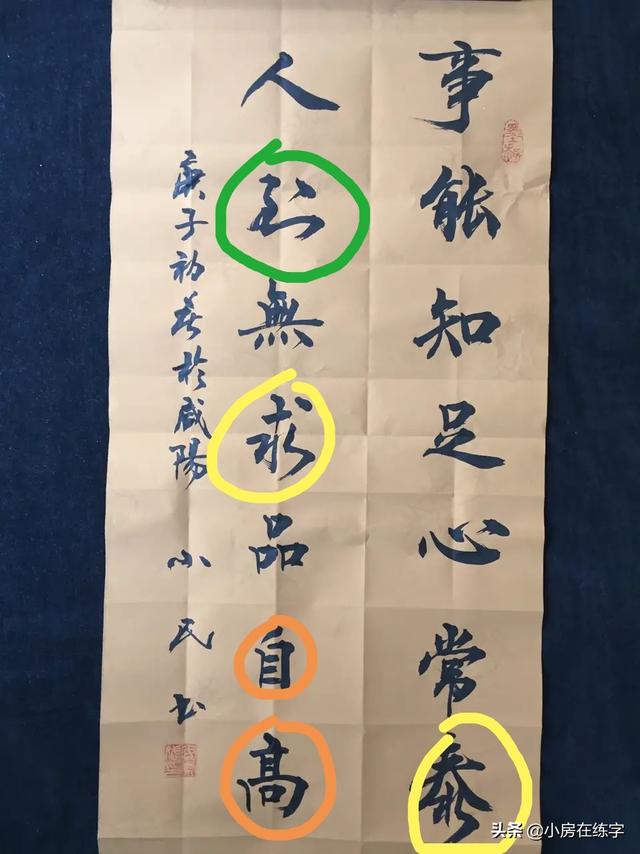 事能知足心常泰
人到無求品自高
庚子初春於咸陽
小民书
头条 @小房在练字